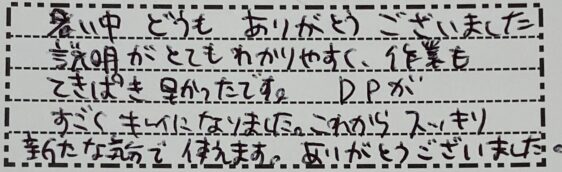 暑い中 どうも ありがとう ございました
説明がとてもわかりやすく、作業も
てきぱき早かったです。 DPが
すごくキレイになりました。これから スッキリ
新たな気分で使えます。ありがとうございました。